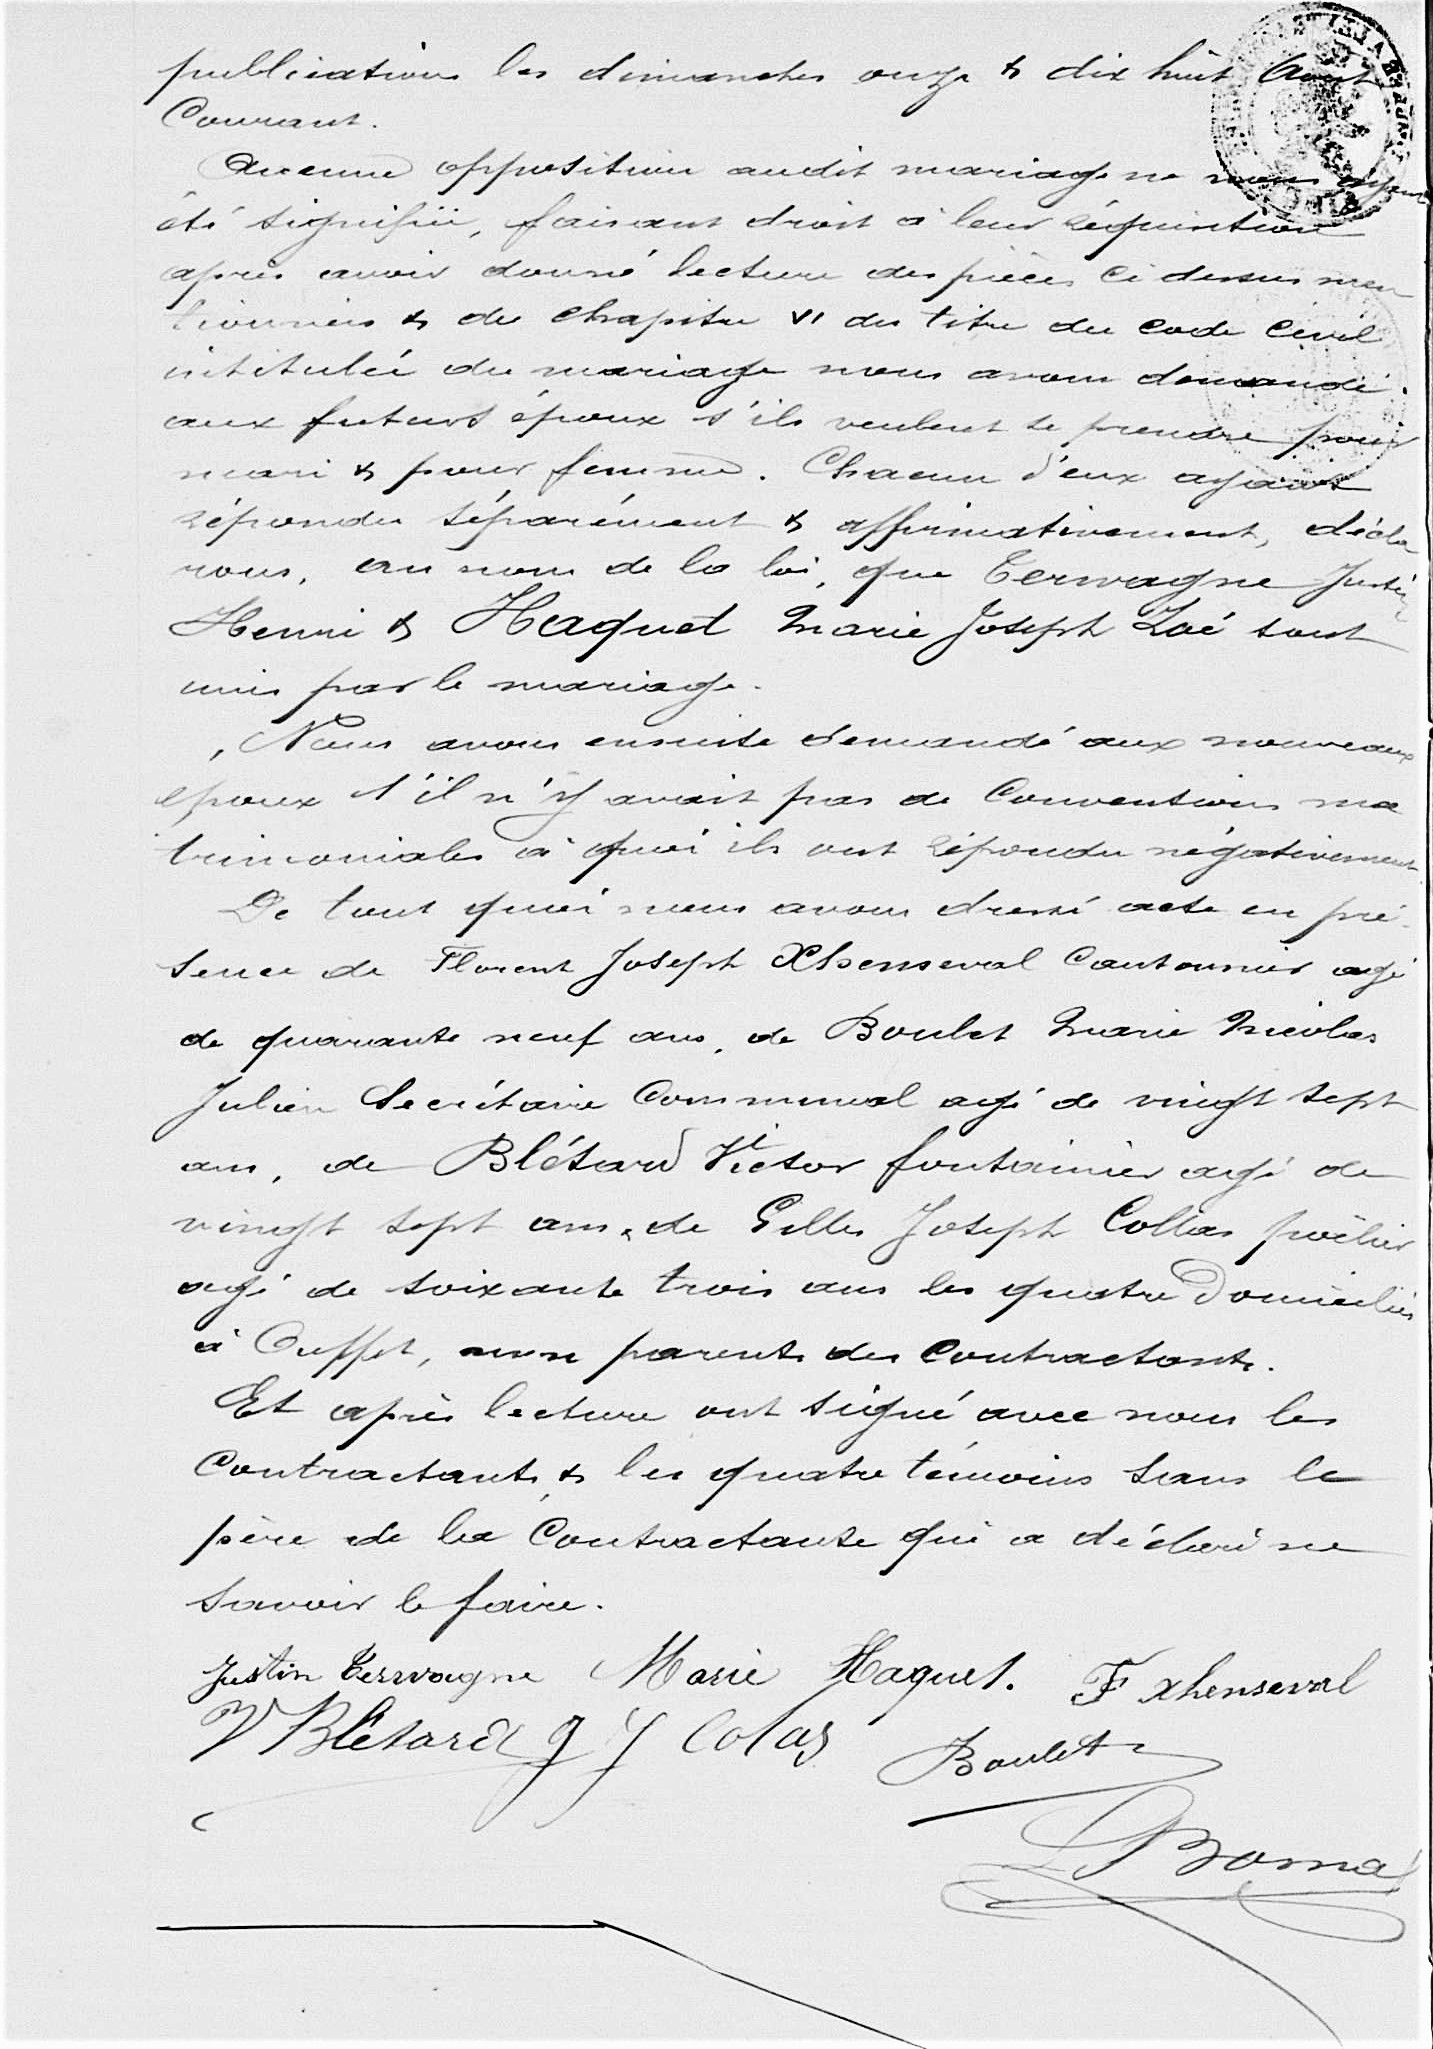 publications les dimanches onze & dix huit Août
Courant.
Aucune opposition audit mariage ne nous ayant
été signifiée, faisant droit à leur réquisition
après avoir donné lecture des pièces ci dessus men
tionnées & du chapitre VI du titre du code civil
intitulée du mariage nous avons demandé
aux futurs époux s'ils veulent se prendre pour
mari & pour femme. Chacun d'eux ayant
répondu séparément & affirmativement, décla
rons, au nom de la loi, que Terwagne Justin
Henri & Haquet Marie Joseph Zoé sont
unis par le mariage.
Nous avons ensuite demandé aux nouveaux
époux s'il n'y avait pas de Conventions ma
trimoniales à quoi ils ont répondu négativement.
De tout quoi nous avons dressé acte en pré-
sence de Florent Joseph Xhenseval Cantonnier agé
de quarante neuf ans, de Boulet Marie Nicolas
Julien Secrétaire Communal agé de vingt sept
ans, de Blétard Victor fontainier agé de
vingt sept ans, de Gilles Joseph Collas poêlier
agé de soixante trois ans les quatre Domiciliés
à Ouffet, non parents des Contractants.
Et après lecture ont signé avec nous les
Contractants & les quatre témoins sans le
père de la Contractante qui a déclaré ne
savoir le faire.
Justin Terwagne Marie Haquet. F Xhenseval
V Blétard g j Colas Boulet
L Boma